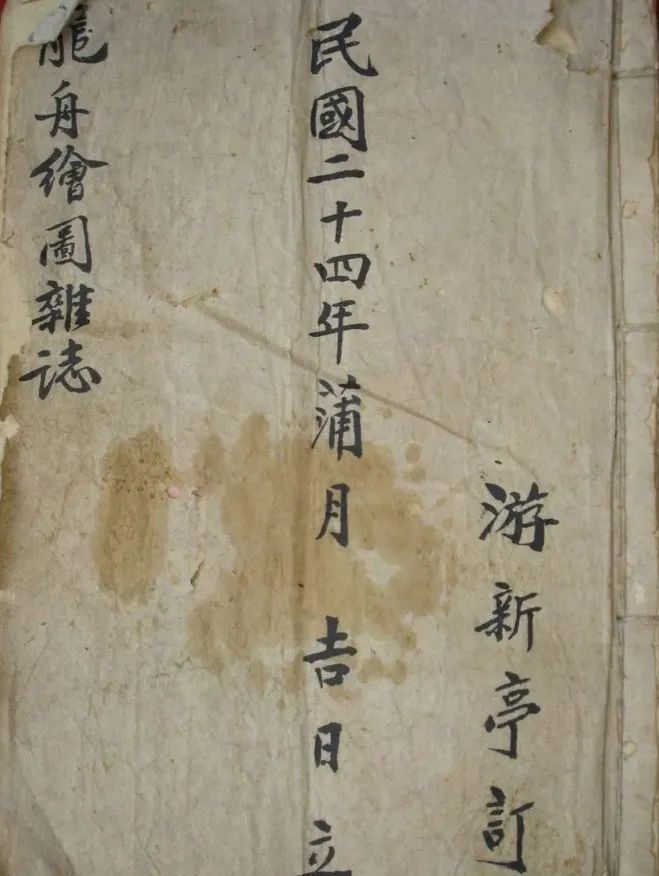 游新亭訂
民國二十四年蒲月 吉日立
龍舟繪圖雜誌